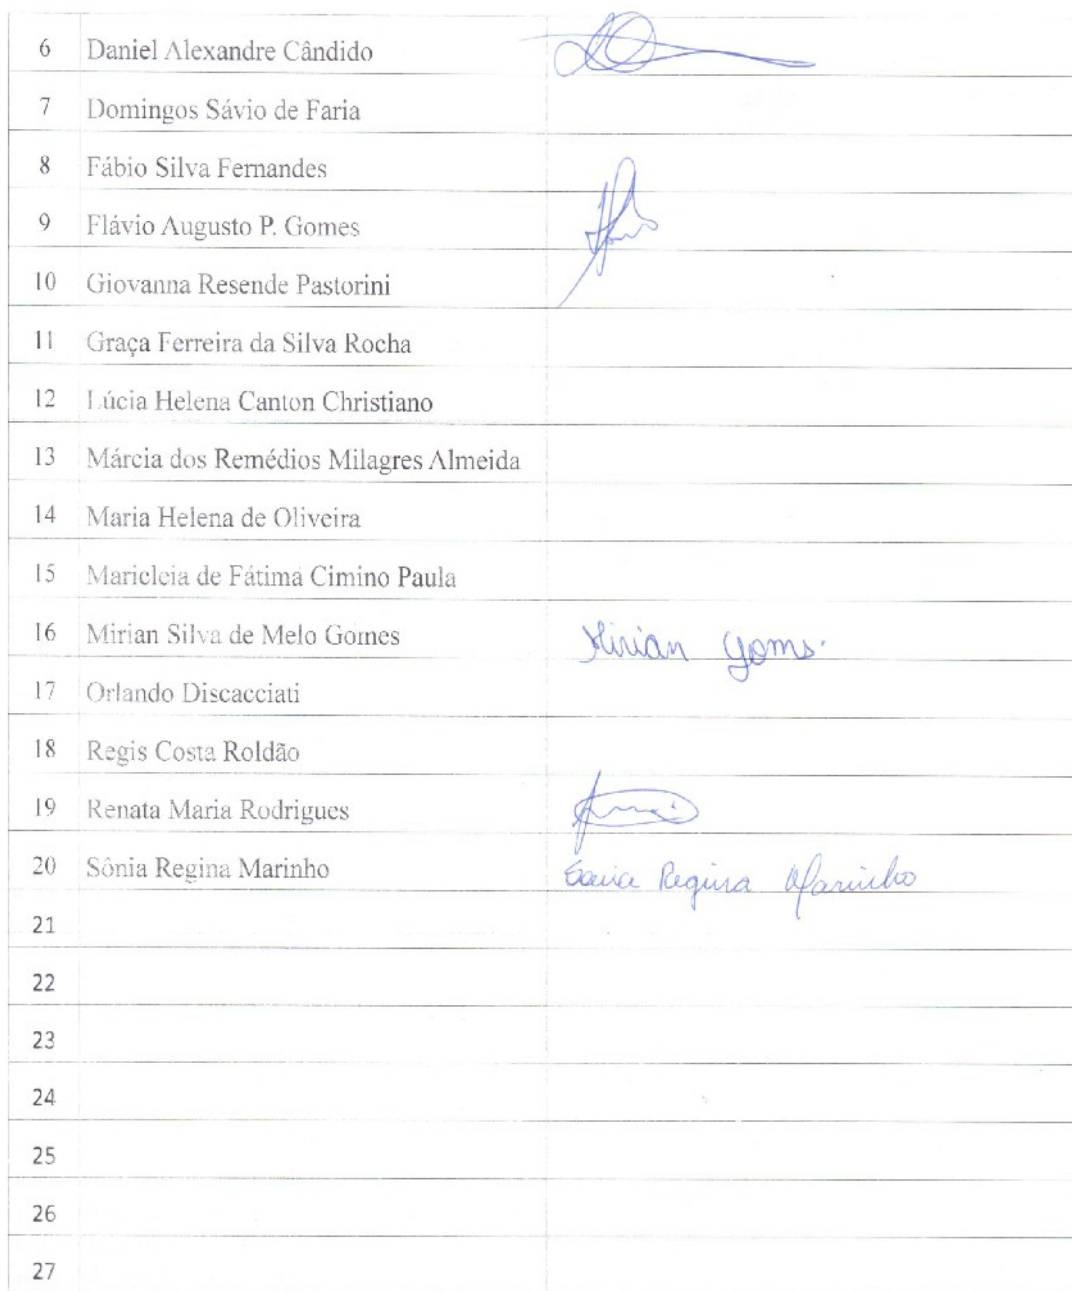 6 Daniel Alexandre Cândido
7 Domingos Sávio de Faria
8 Fábio Silva Fernandes
9 Flávio Augusto P. Gomes
10 Giovanna Resende Pastorini
11 Graça Ferreira da Silva Rocha
12 Lúcia Helena Canton Christiano
13 Márcia dos Remédios Milagres Almeida
14 Maria Helena de Oliveira
15 Maricleia de Fátima Cimino Paula
16 Mirian Silva de Melo Gomes Mirian Goms.
17 Orlando Discacciati
18 Regis Costa Roldão
19 Renata Maria Rodrigues
20 Sônia Regina Marinho Sonia Regina Marinho
21
22
23
24
25
26
27